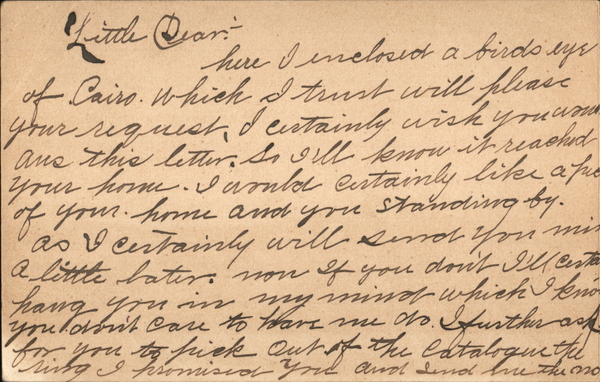 Little Dear:-
here I enclosed a birds eye
of Cairo. which I trust will please
your request, I certainly wish you would
ans this letter. So I'll know it reached
your home. I would certainly like a pic
of your home and you standing by.
as I certainly will send you min
a little later. now If you don't I'll certa
hang you in my mind which I kno
you don't care to have me do. I further ask
for you to pick out of the catalogue the
ring I promised you and send me the no